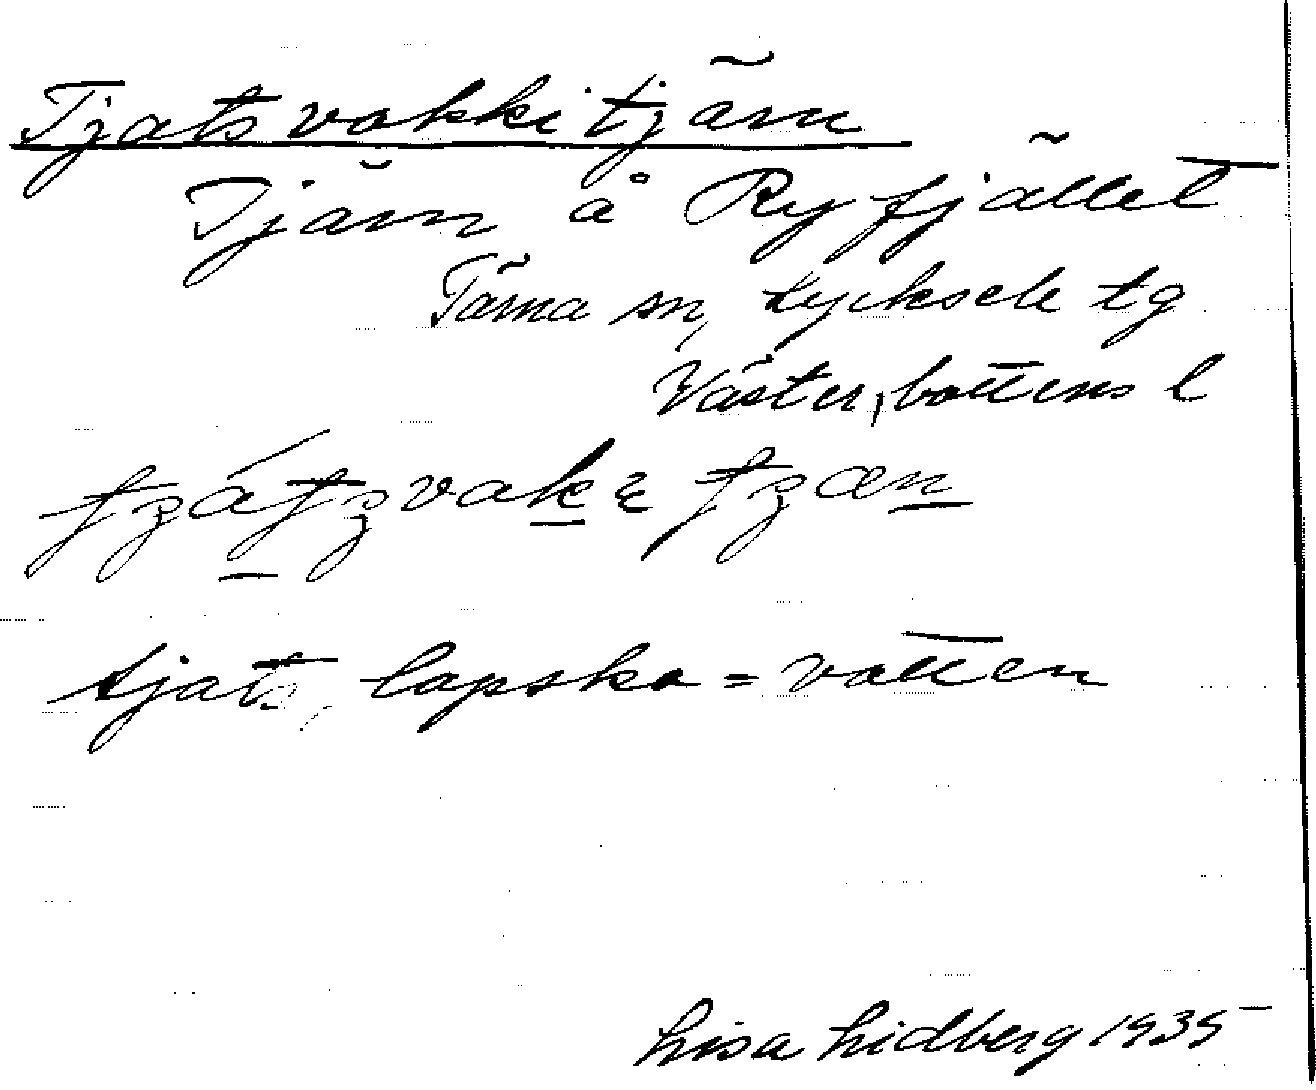 Tjatsvakkitjärn
Tjärn å Ryfjället
Tärna sn, Lycksele tg
Västerbottens l
tjats, lapska = vatten
Lisa Lidberg 1935